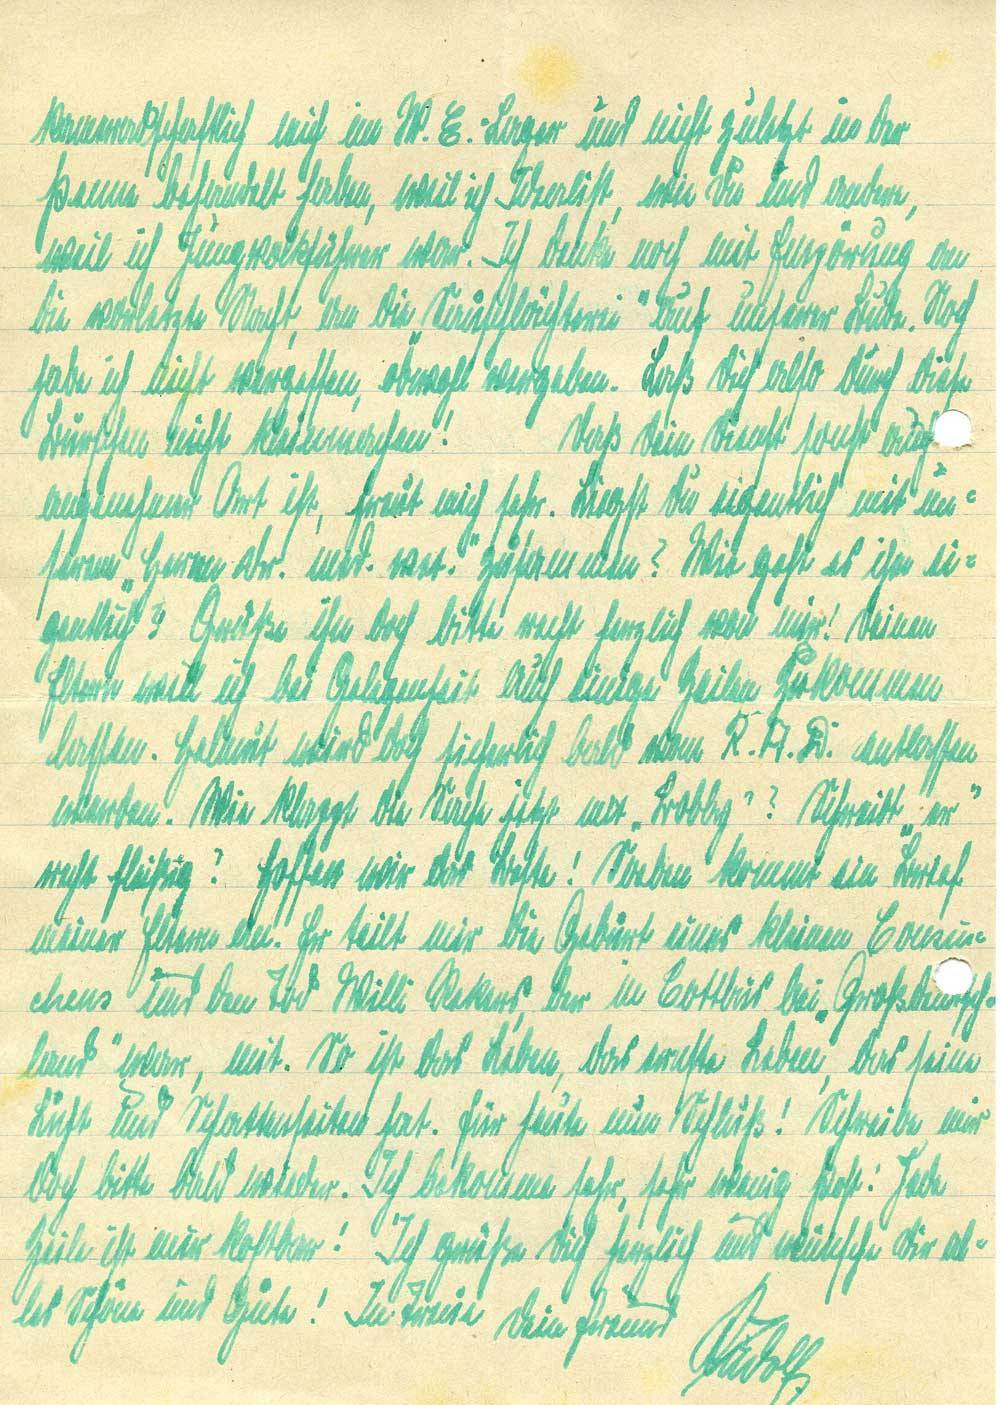 kameradschaftlich mich im W. E.-Lager und nicht zuletzt in der
Penne behandelt haben, weil ich Idealist, wie Du und andere,
weil ich Jungvolkführer war. Ich denke noch mit Empörung an
die vorletzte Nacht, an die "Sauschlächterei" auf unserer Bude. Noch
habe ich nicht vergessen, obwohl vergeben. Laß Dich also durch diese
Burschen nicht kleinmachen! Daß Dein Dienst sonst auch
angenehmer Art ist, freut mich sehr. Liegst Du eigentlich mit un-
serem "Herrn Dr. med. vet." zusammen? Wie geht es ihm ei-
gentlich? Grüße ihn doch bitte recht herzlich von mir! Deinen
Eltern will ich bei Gelegenheit auch einige Zeilen zukommen
lassen. Helmut wird doch sicherlich bald vom R.A.D. entlassen
werden. Wie klappt die Sache jetzt mit "Bobby"? Schreibt "er"
recht fleißig? Hoffen wir das Beste! Soeben kommt ein Brief
meiner Eltern an. Er teilt mir die Geburt eines kleinen Cousin-
chens und den Tod Willi Rekers, der in Cottbus bei "Großdeutsch-
land" war, mit. So ist das Leben, das ernste Leben, das seine
Licht und Schattenseiten hat. Für heute nun Schluß! Schreibe mir
doch bitte bald wieder. Ich bekomme sehr, sehr wenig Post! Jede
Zeile ist mir kostbar! Ich grüße Dich herzlich und wünsche Dir al-
les Schöne und Gute! In Treue Dein Freund
Rudolf